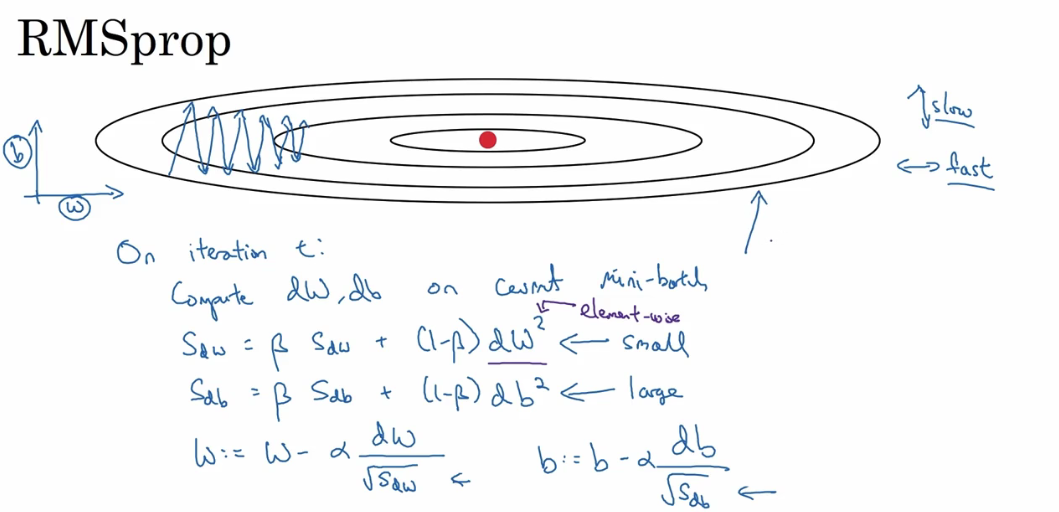 RMSprop
slow
fast
b
w
On iteration t:
Compute dW, db on current mini-batch
element-wise
Sdw = β Sdw + (1-β) dW² ← small
Sdb = β Sdb + (1-β) db² ← large
W := W - α dW/√Sdw ←
b := b - α db/√Sdb ←